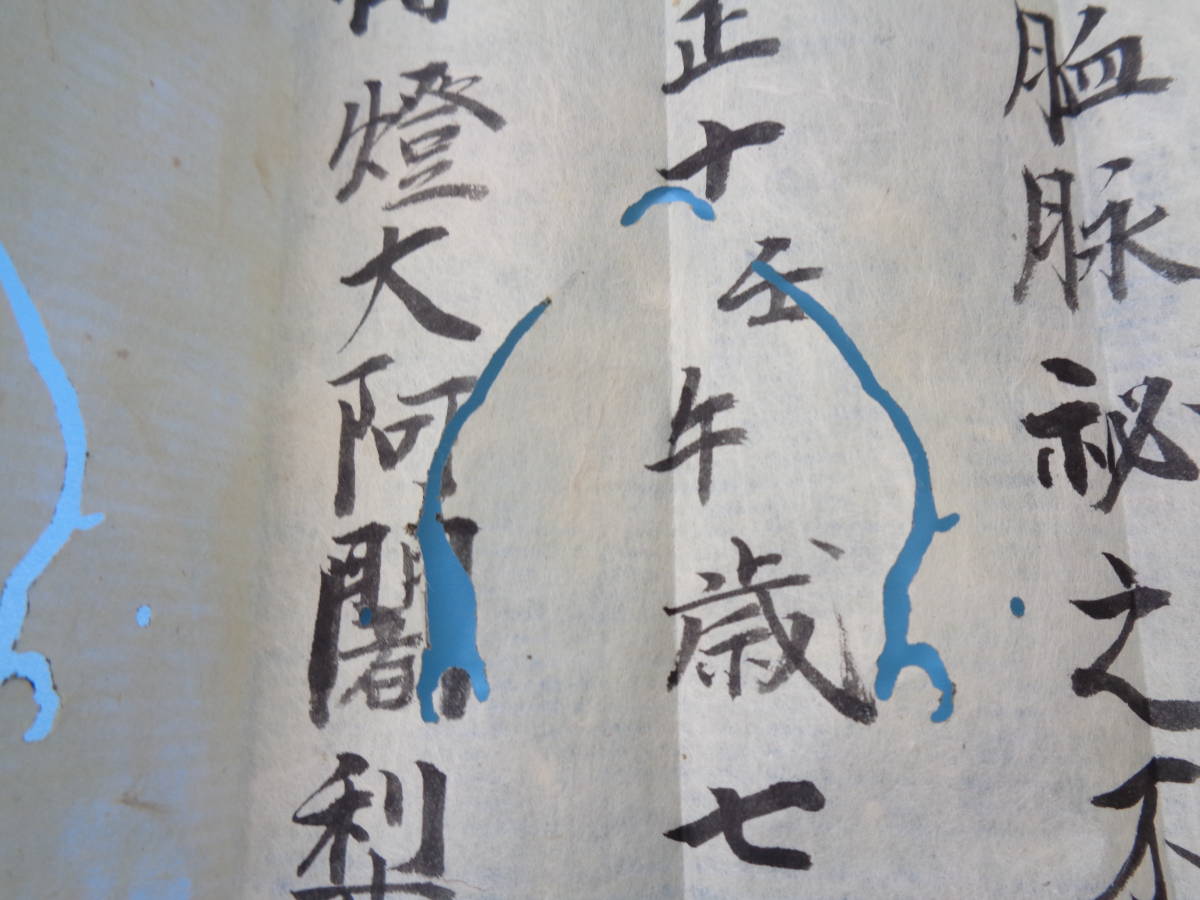 脉祕之不
正十壬午歳七
燈大阿闍梨